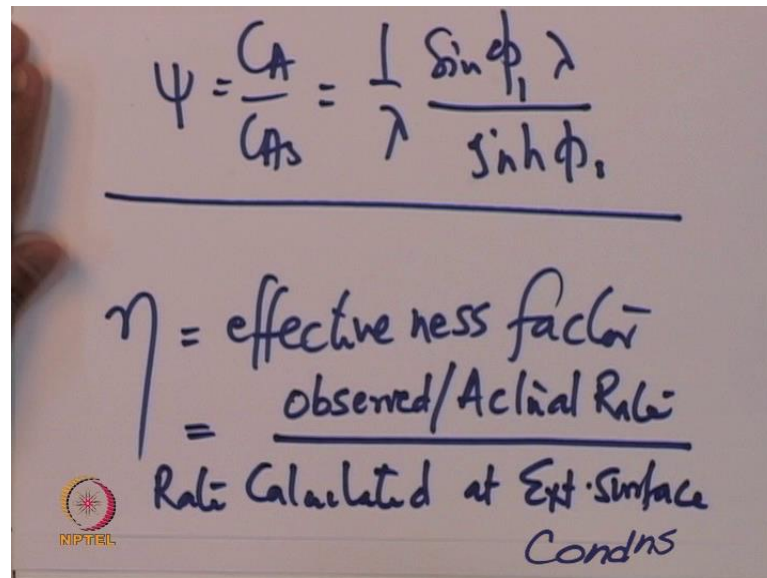 ψ = C_A / C_As = 1/λ Sin φ₁ λ / Sinh φ₁
η = effective ness factor
= observed/Actual Rate
Rate Calculated at Ext. Surface
Condns
NPTEL